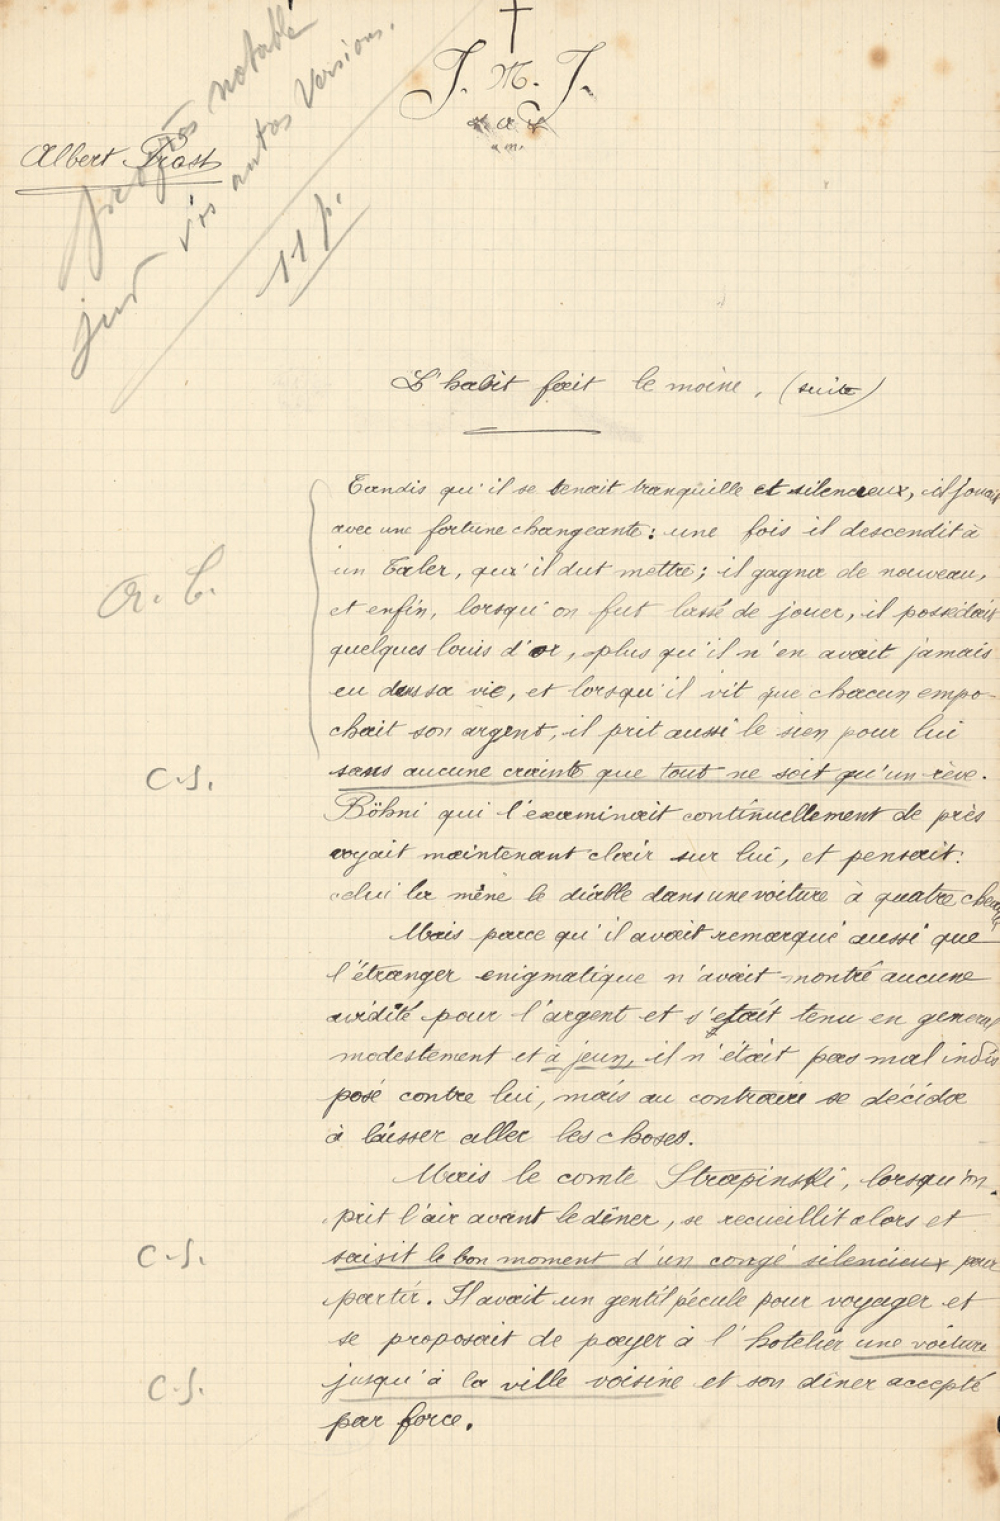 J. M. J.
Albert Prost
progrès très notable
sur vos autres versions.
11 p.
L'habit fait le moine, (suite)
Tandis qu'il se tenait tranquille et silencieux, il jouait
avec une fortune changeante : une fois il descendit à
un Taler, qu'il dut mettre ; il gagna de nouveau,
A. b.
et enfin, lorsqu'on fut lassé de jouer, il possédait
quelques louis d'or, plus qu'il n'en avait jamais
eu dans sa vie, et lorsqu'il vit que chacun empo-
chait son argent, il prit aussi le sien pour lui
C-S.
sans aucune crainte que tout ne soit qu'un rêve.
Böhni qui l'examinait continuellement de près
voyait maintenant clair sur lui, et pensait :
celui la mène le diable dans une voiture à quatre chevaux
Mais parce qu'il avait remarqué aussi que
l'étranger enigmatique n'avait montré aucune
avidité pour l'argent et s'était tenu en general
modestement et à jeun, il n'était pas mal indis
posé contre lui, mais au contraire se décida
à laisser aller les choses.
Mais le comte Strapinski, lorsqu'on
prit l'air avant le dîner, se recueillit alors et
C-S.
saisit le bon moment d'un congé silencieux pour
partir. Il avait un gentil pécule pour voyager et
se proposait de payer à l'hotelier une voiture
C-S.
jusqu'à la ville voisine et son dîner accepté
par force.